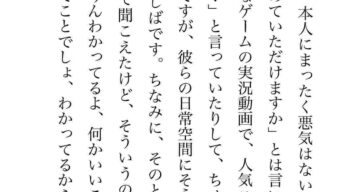 本人にまったく悪気はない
めていただけますか」とは言
なゲームの実況動画で、人気
」と言っていたりして、ち
ですが、彼らの日常空間にそ
しばです。ちなみに、そのと
て聞こえたけど、そういうの
んわかってるよ、何かいい
ことでしょ、わかってるから